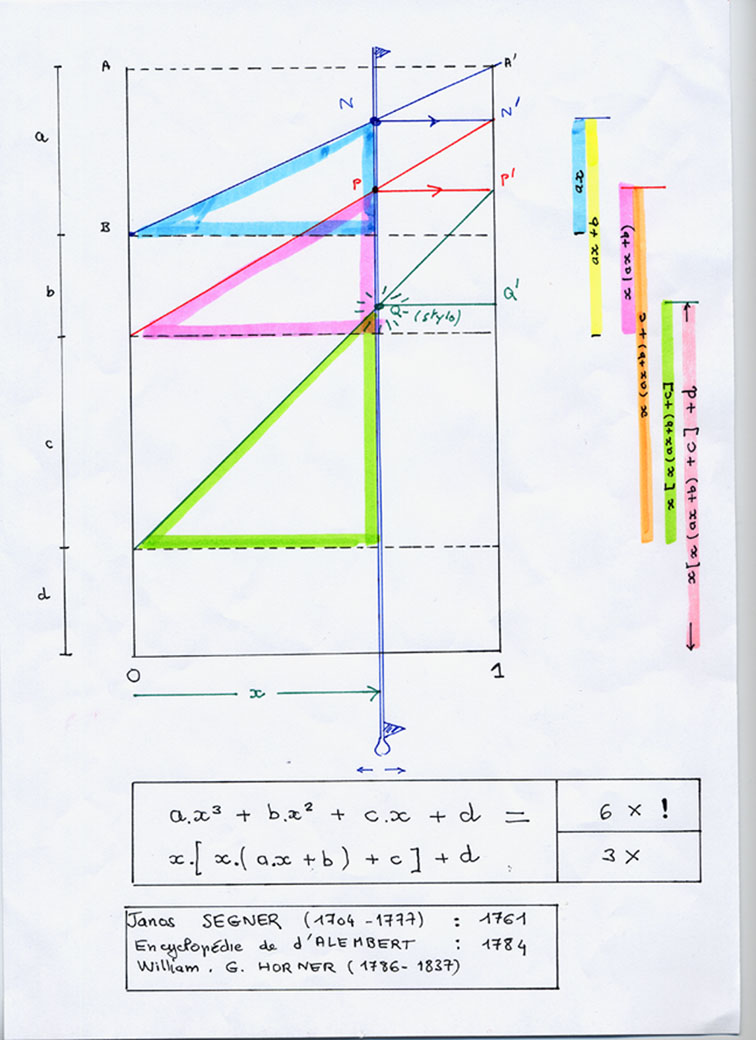 A
A'
N
N'
a
P
P'
B
b
Q (stylo)
Q'
c
d
0
1
x
ax
ax + b
x(ax+b)
x(ax+b)+c
x[x(ax+b)+c]
x[x(ax+b)+c]+d
a.x³ + b.x² + c.x + d =
6 × !
x.[ x.(a.x + b) + c ] + d
3 ×
Janos SEGNER (1704-1777) : 1761
Encyclopédie de d'ALEMBERT : 1784
William. G. HORNER (1786-1837)